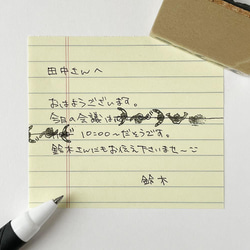 田中さんへ
おはようございます。
今日の会議は
10:00〜だそうです。
鈴木さんにもお伝え下さいませ〜
鈴木